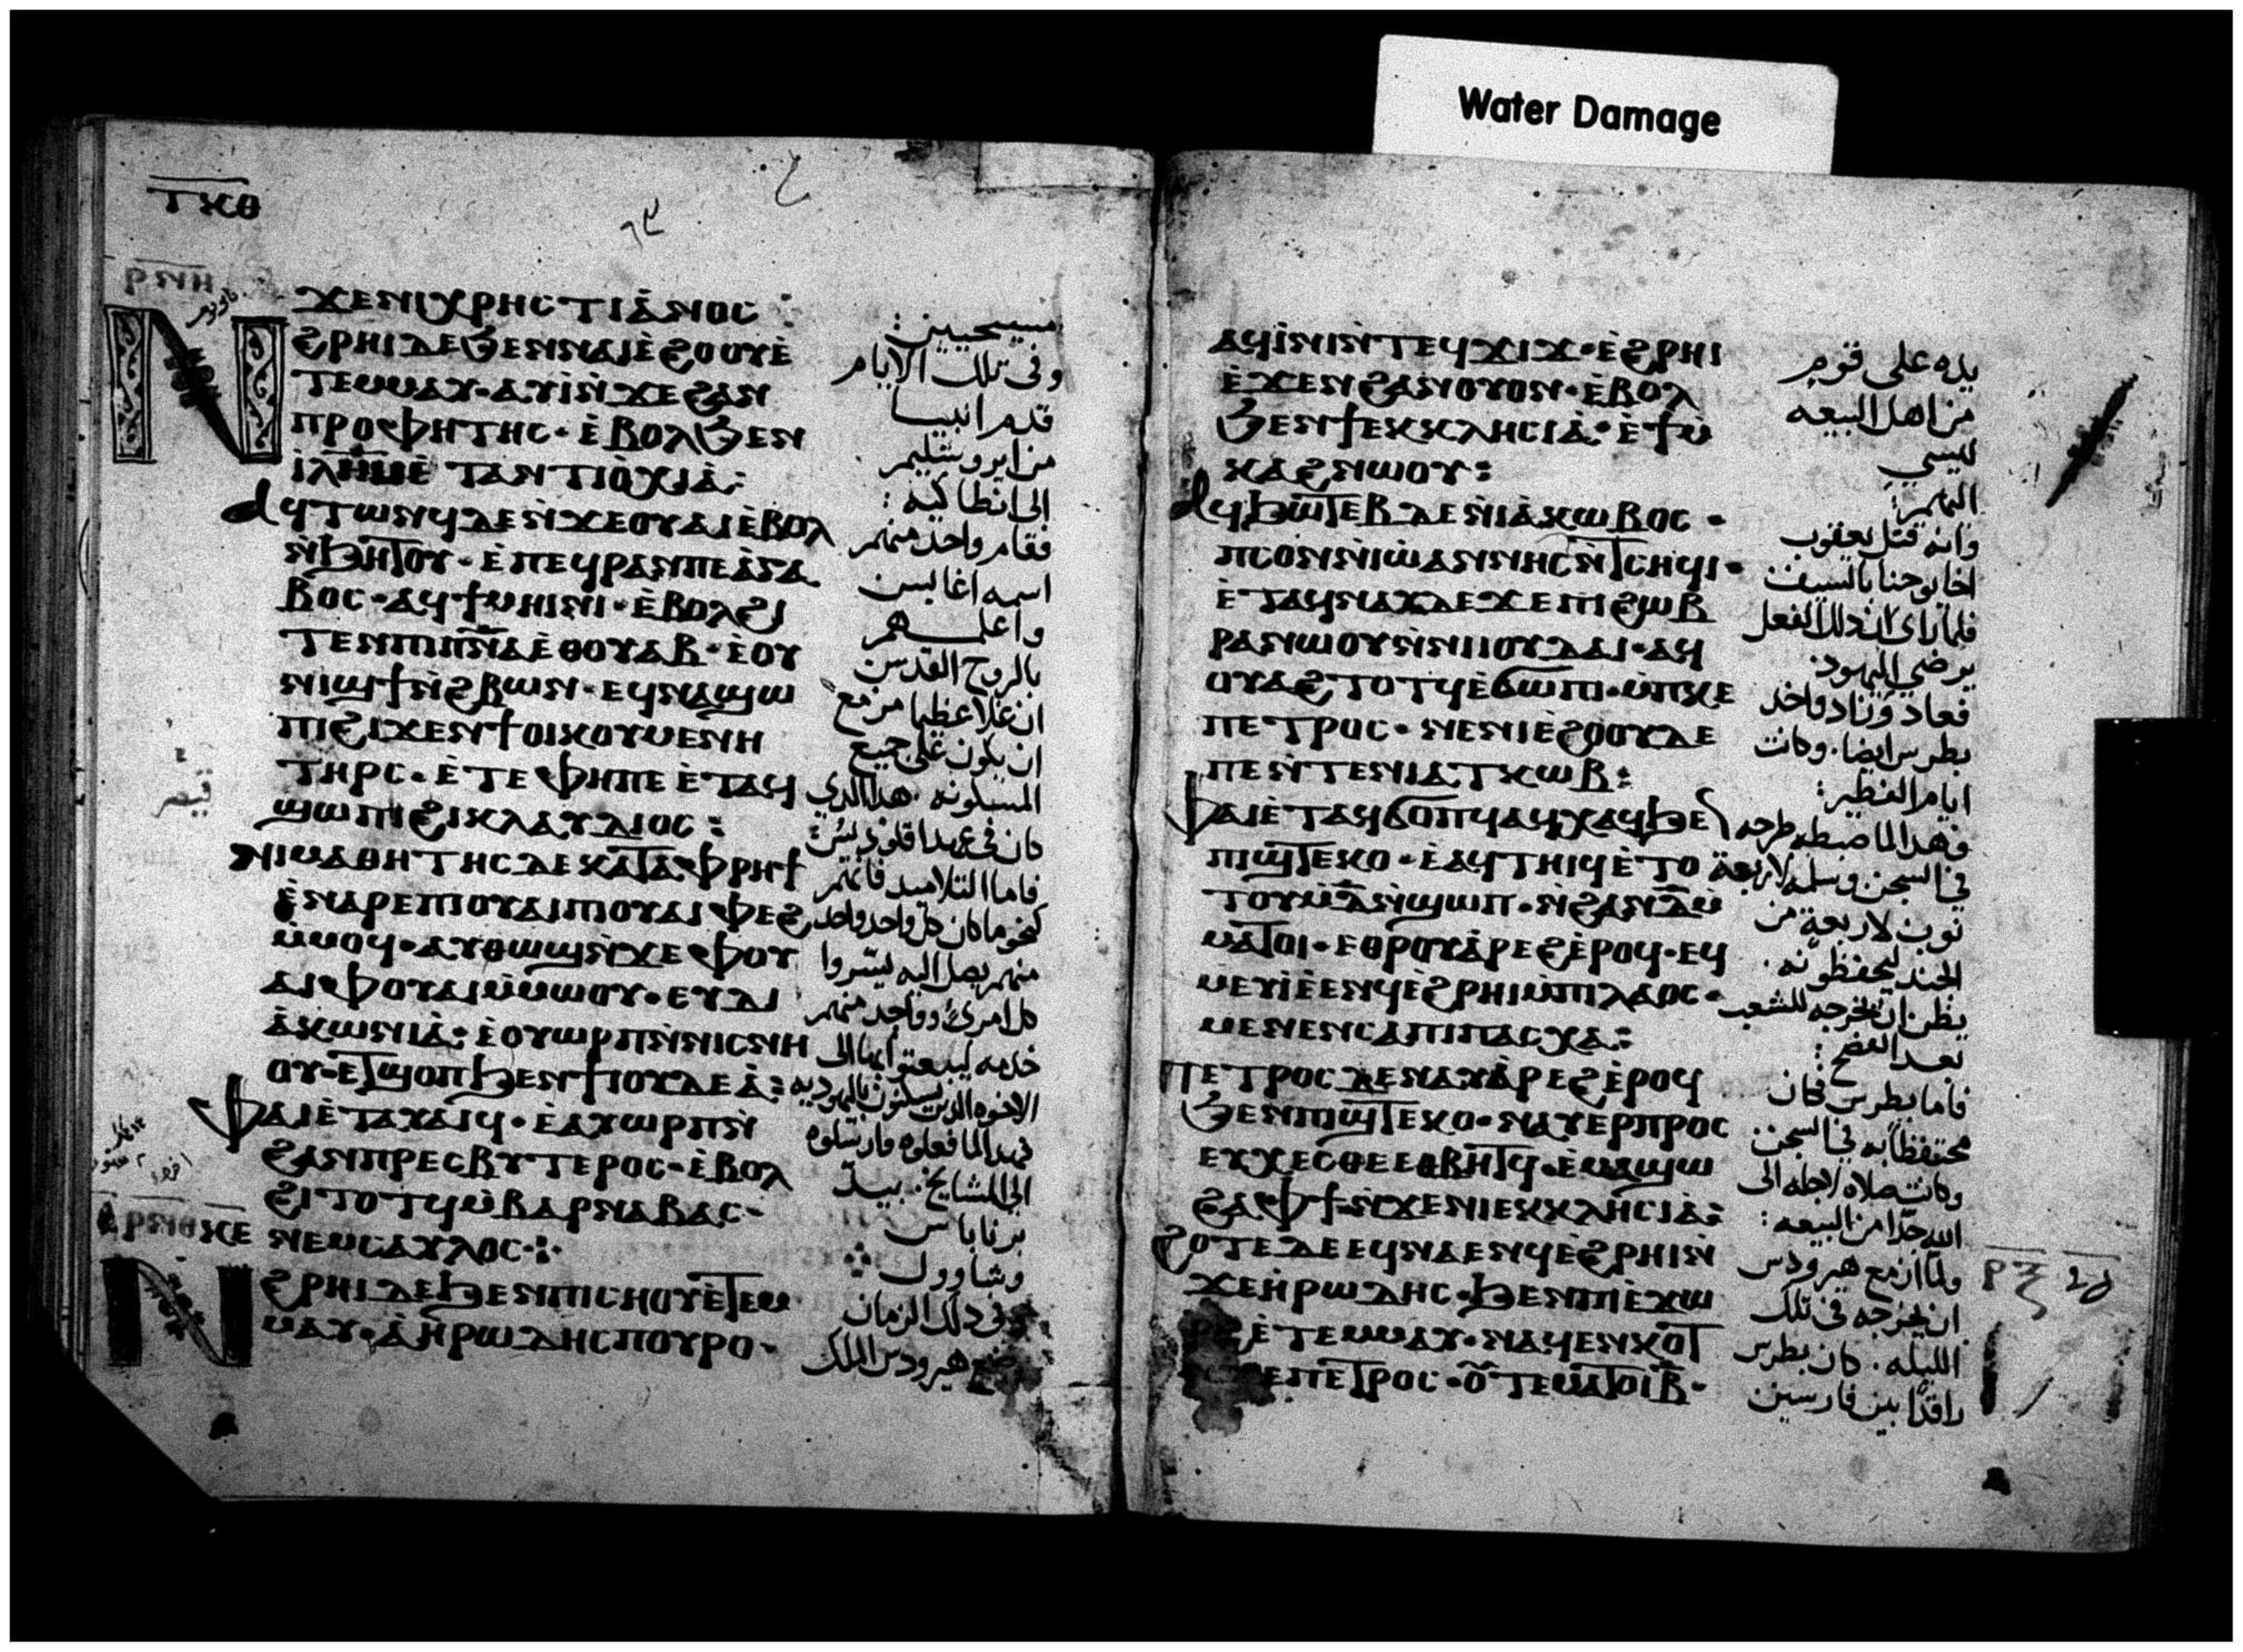 Water Damage
ⲧⲕⲑ
ⲣⲛⲏ
ϫⲉⲛⲓⲭⲣⲏⲥⲧⲓⲁ̀ⲛⲟⲥ :
ⲛ
ϩⲣⲏⲓⲇⲉϧⲉⲛⲛⲁⲓⲉ̀ϩⲟⲟⲩⲉ̀
ⲧⲉⲙⲙⲁⲩ · ⲁⲩⲓ̀ⲛ̀ϫⲉϩⲁⲛ
ⲡⲣⲟⲫⲏⲧⲏⲥ · ⲉ̀ⲃⲟⲗϧⲉⲛ
ⲓ̀ⲗⲏ̅ⲙ̅ⲉ̀ ⲧⲁⲛⲧⲓⲟ̀ⲭⲓⲁ̀ :
ⲁϥⲧⲱⲛϥⲇⲉⲛ̀ϫⲉⲟⲩⲁⲓⲉ̀ⲃⲟⲗ
ⲛ̀ϧⲏⲧⲟⲩ · ⲉ̀ⲡⲉϥⲣⲁⲛⲡⲉⲁ̀ⲅⲁ
ⲃⲟⲥ · ⲁϥϯⲙⲏⲓⲛⲓ · ⲉ̀ⲃⲟⲗϩⲓ
ⲧⲉⲛⲡⲓⲡ̅ⲛ̅ⲁⲉ̀ⲑⲟⲩⲁⲃ · ⲉ̀ⲟⲩ
ⲛⲓϣϯⲛ̀ϩⲃⲱⲛ · ⲉϥⲛⲁϣⲱ
ⲡⲓϩⲓϫⲉⲛϯⲟⲓⲕⲟⲩⲙⲉⲛⲏ
ⲧⲏⲣⲥ · ⲉ̀ⲧⲉⲫⲏⲡⲉ ⲉ̀ⲧⲁϥ
ϣⲱⲡⲓϩⲓⲕⲗⲁⲩⲇⲓⲟⲥ :
ⲛⲓⲙⲁⲑⲏⲧⲏⲥⲇⲉⲕⲁⲧⲁⲫⲣⲏϯ
ⲉ̀ⲛⲁⲣⲉⲡⲓⲟⲩⲁⲓⲡⲓⲟⲩⲁⲓⲫⲉϩ
ⲙ̀ⲙⲟϥ · ⲁⲩⲑⲱϣⲛ̀ϫⲉⲫⲟⲩ
ⲁⲓⲫⲟⲩⲁⲓⲙ̀ⲙⲱⲟⲩ · ⲉⲩⲇⲓ
ⲁ̀ⲕⲱⲛⲓⲁ̀ : ⲉ̀ⲟⲩⲱⲣⲡⲛ̀ⲛⲓⲥⲛⲏ
ⲟⲩ · ⲉⲧϣⲟⲡϧⲉⲛϯⲓⲟⲩⲇⲉⲁ̀ :
ⲫⲁⲓⲉ̀ⲧⲁⲩⲁ̀ⲓϥ · ⲉ̀ⲁⲩⲱⲣⲡⲛ̀
ϩⲁⲛⲡⲣⲉⲥⲃⲩⲧⲉⲣⲟⲥ · ⲉ̀ⲃⲟⲗ
ϩⲓⲧⲟⲧϥⲙ̀ⲃⲁⲣⲛⲁⲃⲁⲥ ·
ⲣⲛⲑ ⲕⲉ
ⲛⲉⲙⲥⲁⲩⲗⲟⲥ ·:·
ⲛ
ϩⲣⲏⲓⲇⲉϧⲉⲛⲡⲓⲥⲏⲟⲩⲉ̀ⲧⲉⲙ
ⲙⲁⲩ · ⲁ̀ⲏ̀ⲣⲱⲇⲏⲥⲡⲟⲩⲣⲟ ·
مسيحيين :
وفى تلك الايام
قدم انبيا
من ايروشليم
الى انطاكيه :
فقام واحد منهم
اسمه اغابس
واعلمهم
بالروح القدس
ان غلا عظيما مزمع
ان يكون على جميع
المسكونه . هذا الذي
كان فى عهد اقلوديس :
فاما التلاميد فانهم
كنحو ما كان كل واحد واحد
منهم يصل اليه يسروا
كل امرئ وواحد منهم
خدمه ليبعتو بها الى
الاخوه الذين يسكنون باليهوديه
فهدا لما فعلوه وارسلوه
الى المشايخ . بيد
برنابا س
وشاوول
وفى دلك الزمان
هيرودس الملك
ⲁϥⲓ̀ⲛⲓⲛ̀ⲧⲉϥϫⲓϫ · ⲉ̀ϩⲣⲏⲓ
ⲉ̀ϫⲉⲛϩⲁⲛⲟⲩⲟⲛ · ⲉ̀ⲃⲟⲗ
ϧⲉⲛϯⲉⲕⲕⲗⲏⲥⲓⲁ̀ · ⲉ̀ϯⲙ̀
ⲕⲁϩⲛⲱⲟⲩ :
ⲁϥϧⲱⲧⲉⲃⲇⲉⲛ̀ⲓⲁ̀ⲕⲱⲃⲟⲥ ·
ⲡⲥⲟⲛⲛ̀ⲓⲱⲁⲛⲛⲏⲥⲛ̀ⲧⲥⲏϥⲓ ·
ⲉ̀ⲧⲁϥⲛⲁⲩⲇⲉϫⲉⲡⲓϩⲱⲃ
ⲣⲁⲛⲱⲟⲩⲛ̀ⲛⲓⲓⲟⲩⲇⲁⲓ · ⲁϥ
ⲟⲩⲁϩⲧⲟⲧϥⲉ̀ϭⲱⲡⲓ · ⲙ̀ⲡⲕⲉ
ⲡⲉⲧⲣⲟⲥ · ⲛⲉⲛⲓⲉ̀ϩⲟⲟⲩⲇⲉ
ⲡⲉⲛ̀ⲧⲉⲛⲓⲁⲧⲕⲱⲃ :
ⲫⲁⲓⲉ̀ⲧⲁϥϭⲟⲡϥⲁϥⲭⲁϥϧⲉ
ⲡⲓϣⲧⲉⲕⲟ · ⲉ̀ⲁϥⲧⲏⲓϥⲉ̀ⲧⲟ
ⲧⲟⲩⲙ̀ⲇ̅ⲛ̀ϣⲱⲡ · ⲛ̀ϩⲁⲛⲇ̅ⲙ̀
ⲙⲁⲧⲟⲓ · ⲉⲑⲣⲟⲩⲁ̀ⲣⲉϩⲉ̀ⲣⲟϥ · ⲉϥ
ⲙⲉⲩⲓ̀ⲉ̀ⲉⲛϥⲉ̀ϩⲣⲏⲓⲙ̀ⲡⲓⲗⲁⲟⲥ ·
ⲙⲉⲛⲉⲛⲥⲁⲡⲓⲡⲁⲥⲭⲁ :
ⲡⲉⲧⲣⲟⲥⲇⲉⲛⲁⲩⲁ̀ⲣⲉϩⲉ̀ⲣⲟϥ
ϧⲉⲛⲡⲓϣⲧⲉⲕⲟ · ⲛⲁⲩⲉⲣⲡⲣⲟⲥ
ⲉⲩⲭⲉⲥⲑⲉⲉⲑⲃⲏⲧϥ · ⲉ̀ⲙⲁϣⲱ
ϩⲁⲫϯⲛ̀ϫⲉⲛⲓⲉⲕⲕⲗⲏⲥⲓⲁ̀ :
ϩⲟⲧⲉⲇⲉⲉϥⲛⲁⲉⲛϥⲉ̀ϩⲣⲏⲓⲛ̀
ϫⲉⲏ̀ⲣⲱⲇⲏⲥ · ϧⲉⲛⲡⲓⲉ̀ϫⲱ
ⲉ̀ⲧⲉⲙⲙⲁⲩ · ⲛⲁϥⲉⲛⲕⲟⲧ
ⲡⲉⲧⲣⲟⲥ · ⲟⲩⲧⲉⲙⲁⲧⲟⲓⲃ̅ ·
يده على قوم
من اهل البيعه
ليسي
اليهم :
وانه قتل يعقوب
اخا يوحنا بالسيف
فلما راى ان دلك الفعل
يرضي اليهود .
فعاد وزاد واخد
بطرس ايضا . وكانت
ايام الفطير :
فهدا لما ضبطه طرحه
في السجن وسلمه لاربعة
نوب لاربعة من
الجند ليحفظونه .
يظن ان يخرجه للشعب
بعد الفصح :
فاما بطرس فكان
محتفظا به في السجن
وكانت صلاه لاجله الى
الله جدا من البيعه :
ولما ازمع هيرودس
ان يخرجه فى تلك
الليله . كان بطرس
راقدا بين فارسين
ⲣⲝ